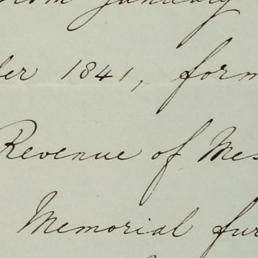 from January
ber 1841, form
Revenue of Mes
Memorial fur